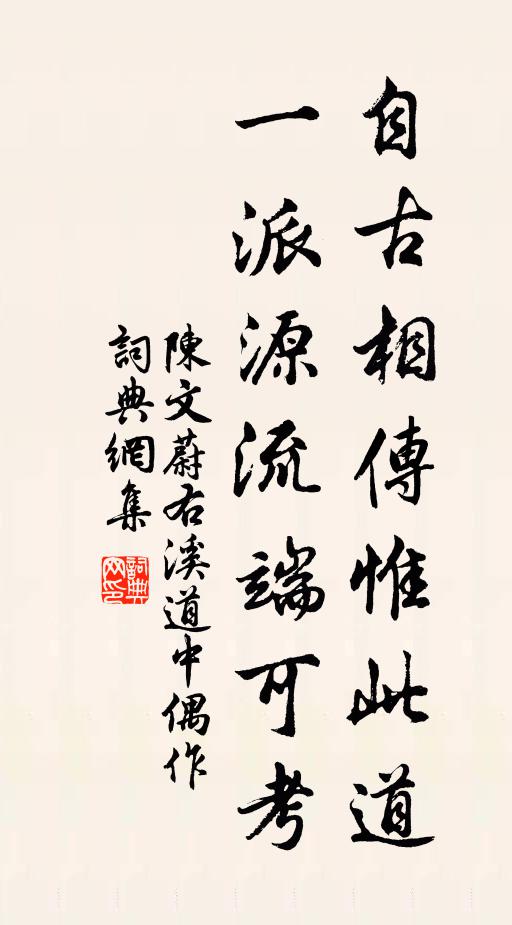 自古相傳惟此道
一派源流端可考
陳文蔚右溪道中偶作
詞典網集
詞典網印